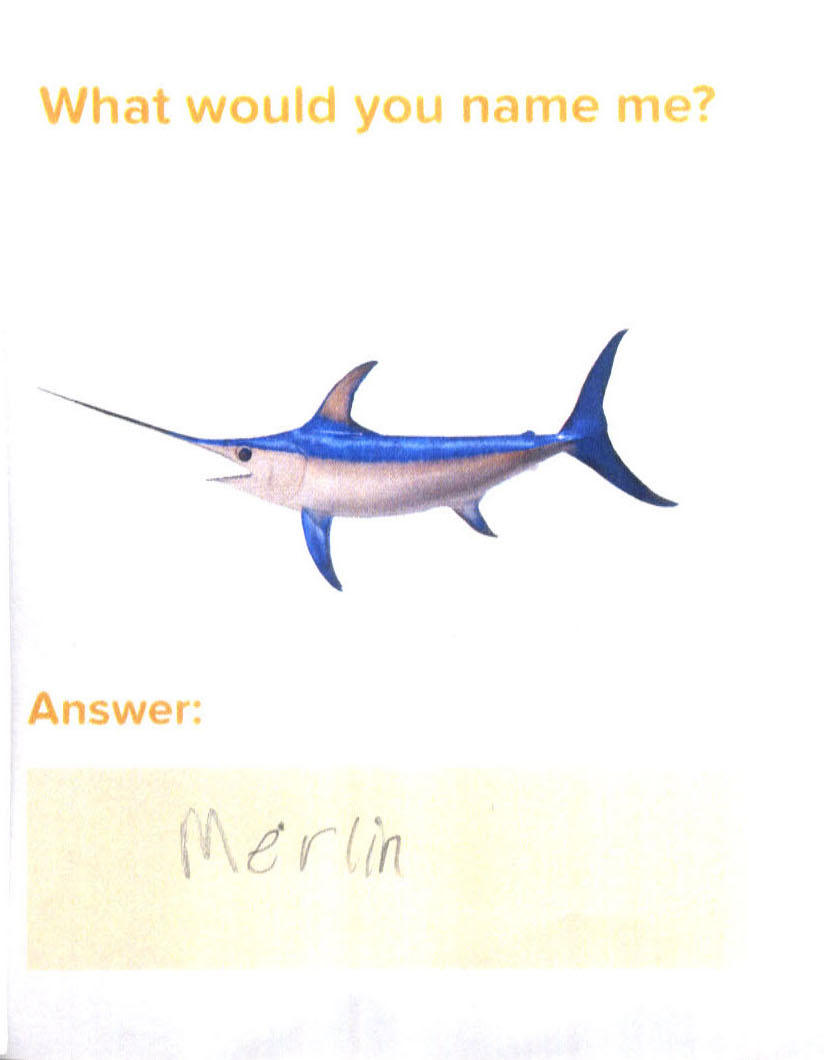 What would you name me?
Answer:
Merlin